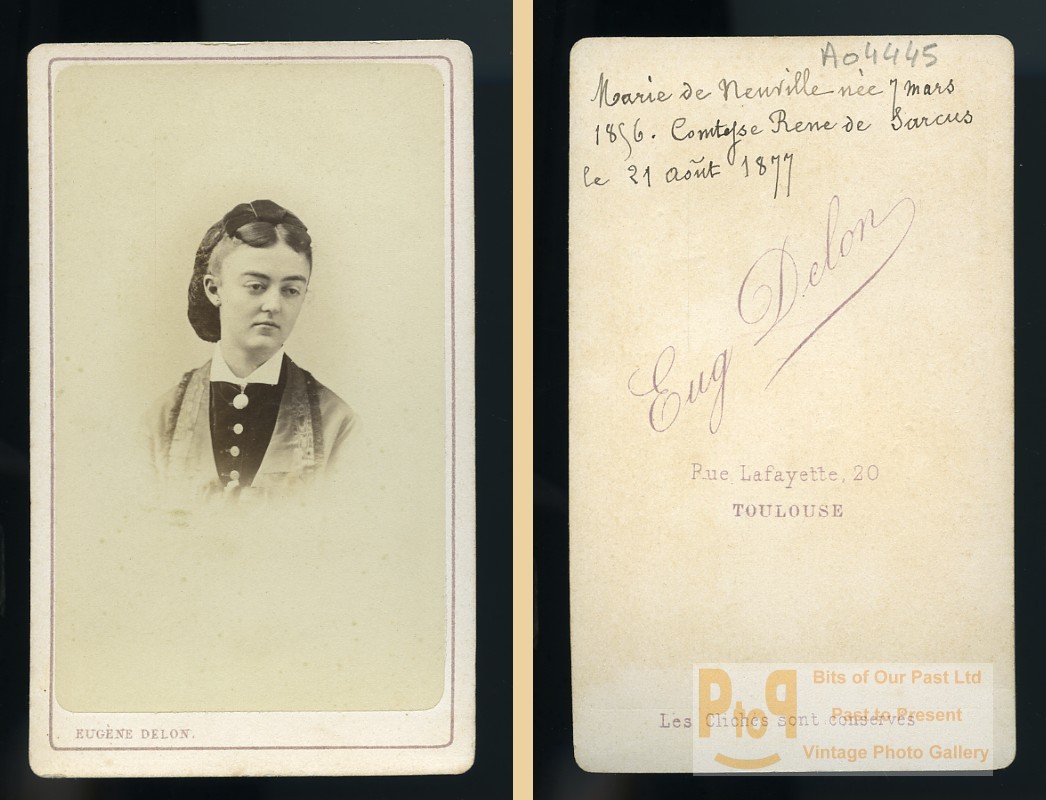 EUGÈNE DELON.
A04445
Marie de Neuville née 7 mars
1856. Comtesse Rene de Sarcus
le 21 août 1877
Eug Delon
Rue Lafayette, 20
TOULOUSE
Les Clichés sont conservés
PtoP
Bits of Our Past Ltd
Past to Present
Vintage Photo Gallery